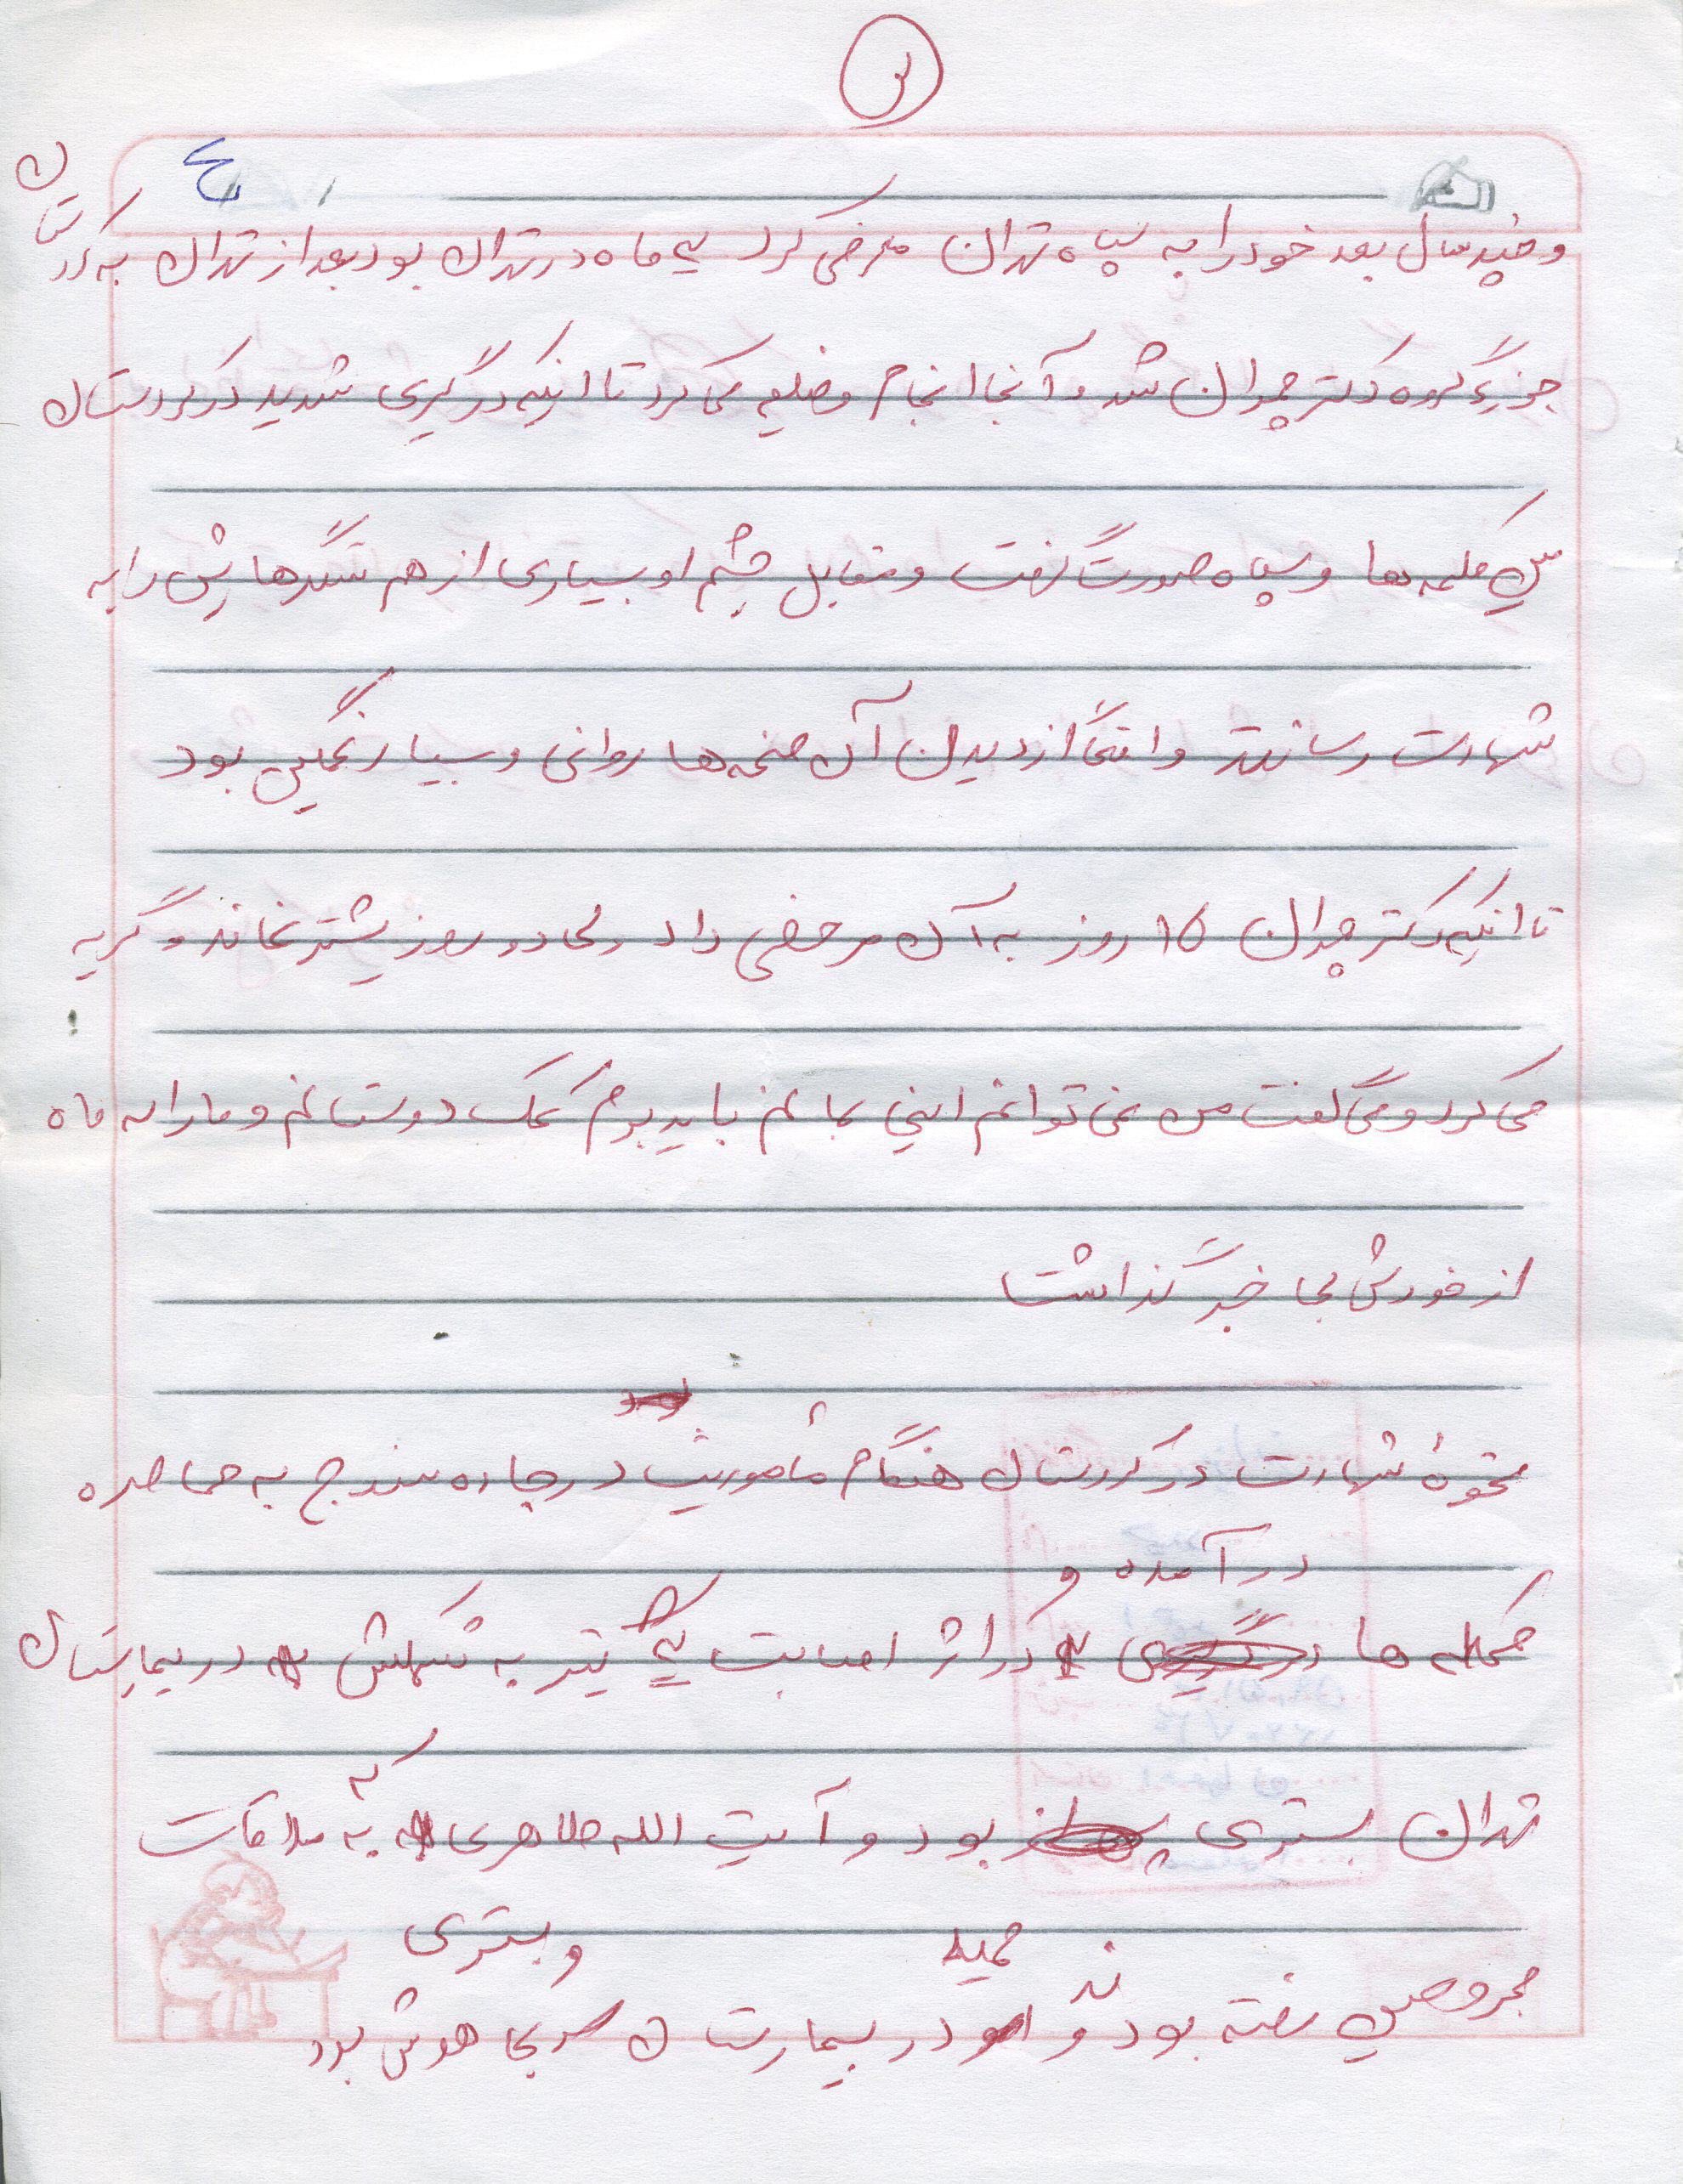 ۳
۴
و چند سال بعد خود را به سپاه تهران معرفی کرد یک ماه در تهران بود بعد از تهران به کردستان
جزء گروه دکتر چمران شد و آنجا انجام وظیفه می کرد تا اینکه درگیری شدید در کردستان
بین کلمه ها و سپاه صورت گرفت و مقابل چشم او بسیاری از هم سنگرهایش را به
شهادت رساندند واقعاً از دیدن آن صحنه ها روانی و بسیار غمگین بود
تا اینکه دکتر چمران ۱۵ روز به آن مرخصی داد ولی دو روز بیشتر نماند و گریه
می کرد و می گفت من نمی توانم اینجا بمانم باید بروم کمک دوستانم و ما را سه ماه
از خودش بی خبر گذاشت
نحوۀ شهادت در کردستان هنگام مأموریت در جاده سنندج به محاصره
در آمده و
کمله ها در اثر اصابت یک تیر به شکمش در بیمارستان
تهران بستری بود و آیت الله طاهری که به ملاقات
مجروحین رفته بودند و حمید در بیمارستان بستری و بی هوش بود